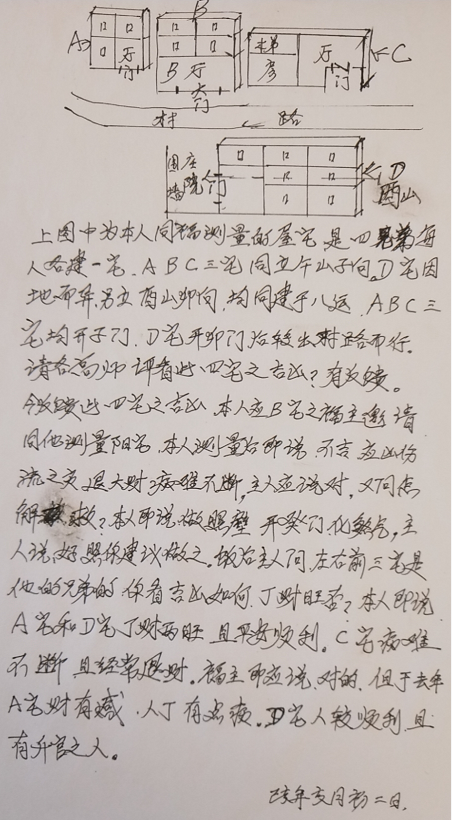 A
B
C
厅
门
B 厅
大门
梯
房
厅
门
村 路
围墙
门
D
酉山
上图中为本人同福测量的屋宅是四兄弟每
人各建一宅，ABC三宅同立午山子向，D宅因
地而异，另立酉山卯向，均同建于八运，ABC三
宅均开子门，D宅开卯门后转出村路而行。
请各高师评看此四宅之吉凶？有反馈。
今反馈此四宅之吉凶，本人应B宅之福主邀请
同他测量阳宅，本人测量后即说不吉，应出伤
流之灾，退大财，病难不断，主人应说对，又问点
解救？本人即说做照壁开癸门化煞气，主
人说好照你建议做之。故后主人问，左右前三宅是
他的兄弟的你看吉凶如何，丁财旺否？本人即说
A宅和D宅丁财两旺且平安顺利。C宅病难
不断且经常退财。福主即应说，对的，但于去年
A宅财有减，人丁有点病。D宅人较顺利且
有升官之人。
年 月初二日。